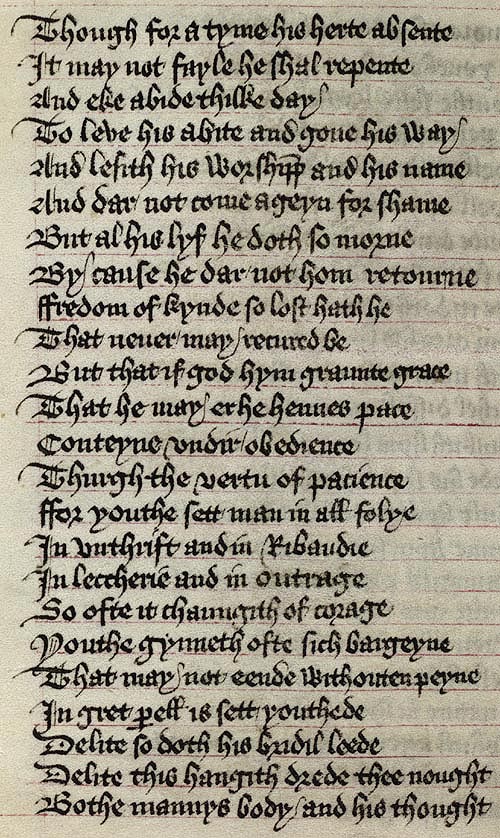 Though for a tyme his herte absente
It may not fayle he shal repente
And eke abide thilke day/
To leve his abite and gone his way/
And lesith his worshipp and his name
And dar not come ageyn for shame
But al his lyf he doth so morne
By/cause he dar not hom retourne
ffredom of kynde so lost hath he
That never may/ recured be
But that if god hym graunte grace
That he may/ er he hennes pace
Conteyne vndir obedience
Thurgh the vertu of pacience
ffor youthe sett man in all folye
In vnthrift and in Ribaudie
In leccherie and in outrage
So ofte it chaungith of corage
Youthe gynneth ofte sich bargeyne
That may/ not eende withouten peyne
In gret perell is sett youthede
Delite so doth his bridil leede
Delite this hangith drede thee nought
Bothe mannys body/ and his thought